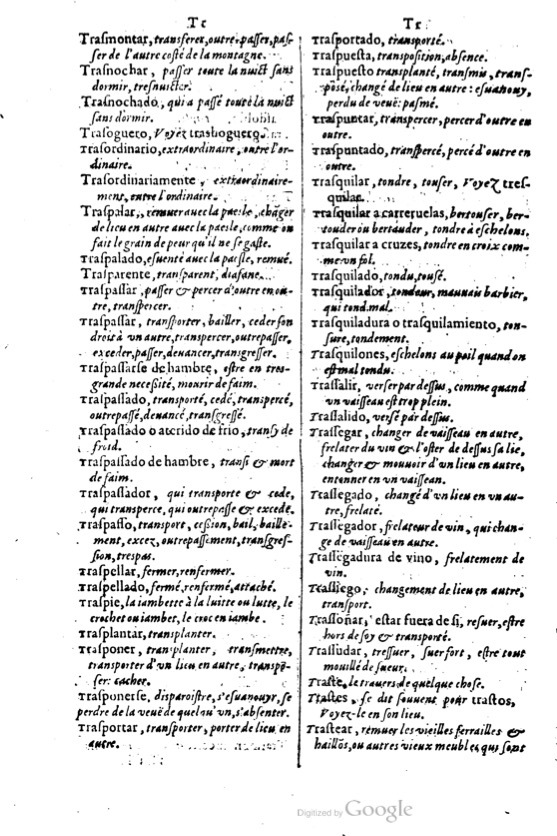 Tr
Trasmontar, transferer, outre-passer, pas-
ser de l'autre costé de la montagne.
Trasnochar, passer toute la nuict sans
dormir, tresnuicter.
Trasnochado, qui a passé toute la nuict
sans dormir.
Trasoguero, Voyez trashoguero.
Trasordinario, extraordinaire, outre l'or-
dinaire.
Trasordinariamente, extraordinaire-
ment, outre l'ordinaire.
Traspalar, remuer avec la paesle, chãger
de lieu en autre avec la paesle, comme on
fait le grain de peur qu'il ne se gaste.
Traspalado, esuenté avec la paesle, remué.
Trasparente, transparent, diafane.
Traspassar, passer & percer d'outre en ou-
tre, transpercer.
Traspassar, transporter, bailler, ceder son
droit à un autre, transpercer, outrepasser,
exceder, passer, deuancer, transgresser.
Traspassarse de hambre, estre en tres-
grande necessité, mourir de faim.
Traspassado, transporté, cedé, transpercé,
outrepassé, deuancé, transgressé.
Traspassado o aterido de frio, transy de
froid.
Traspassado de hambre, transi & mort
de faim.
Traspassador, qui transporte & cede,
qui transperce, qui outrepasse & excede.
Traspasso, transport, cession, bail, baille-
ment, excez, outrepassement, transgres-
sion, trespas.
Traspellar, fermer, renfermer.
Traspellado, fermé, renfermé, attaché.
Traspie, la iambette à la luitte ou lutte, le
crochet ou iambet, le croc en iambe.
Trasplantar, transplanter.
Trasponer, transplanter, transmettre,
transporter d'un lieu en autre, transpo-
ser: cacher.
Trasponerse, disparoistre, s'esuanouyr, se
perdre de la veuë de quelqu'un, s'absenter.
Trasportar, transporter, porter de lieu en
autre.
Tr
Trasportado, transporté.
Traspuesta, transposition, absence.
Traspuesto transplanté, transmis, trans-
posé, changé de lieu en autre: esuanouy,
perdu de veuë: pasmé.
Traspuntar, transpercer, percer d'outre en
outre.
Traspuntado, transpercé, percé d'outre en
outre.
Trasquilar, tondre, touser, Voyez tres-
quilar.
Trasquilar a carreruelas, bertouser, ber-
touder ou bertauder, tondre à eschelons.
Trasquilar a cruzes, tondre en croix com-
me un fol.
Trasquilado, tondu, tousé.
Trasquilador, tondeur, mauuais barbier,
qui tond mal.
Trasquiladura o trasquilamiento, ton-
sure, tondement.
Trasquilones, eschelons au poil quand on
est mal tondu.
Trassalir, verser par dessus, comme quand
un vaisseau est trop plein.
Trassalido, versé par dessus.
Trassegar, changer de vaisseau en autre,
frelater du vin & l'oster de dessus sa lie,
changer & mouuoir d'un lieu en autre,
entonner en un vaisseau.
Trassegado, changé d'un lieu en un au-
tre, frelaté.
Trassegador, frelateur de vin, qui chan-
ge de vaisseau en autre.
Trassegadura de vino, frelatement de
vin.
Trassiego, changement de lieu en autre,
transport.
Trassoñar, estar fuera de si, resuer, estre
hors de soy & transporté.
Trassudar, tressuer, suer fort, estre tout
mouillé de sueur.
Traste, le trauers de quelque chose.
Trastes, se dit souuent pour trastos,
Voyez-le en son lieu.
Trastear, remuer les vieilles ferrailles &
haillõs, ou autres vieux meubles, qui sont
Digitized by Google